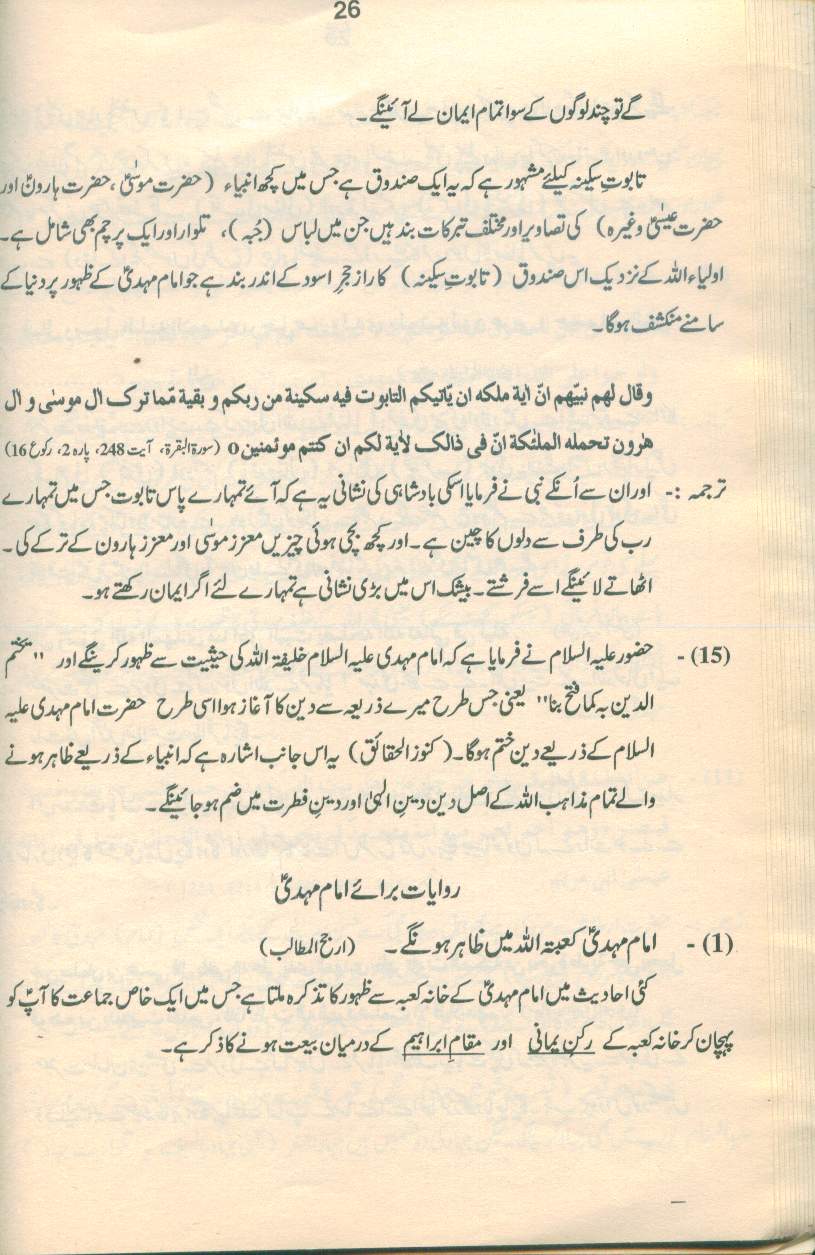 26
گے تو چند لوگوں کے سوا تمام ایمان لے آئینگے۔
تابوتِ سکینہ کیلئے مشہور ہے کہ یہ ایک صندوق ہے جس میں کچھ انبیاء (حضرت موسیٰؑ، حضرت ہارونؑ اور
حضرت عیسیٰؑ وغیرہ) کی تصاویر اور مختلف تبرکات بند ہیں جن میں لباس (جُبہ)، تلوار اور ایک پرچم بھی شامل ہے۔
اولیاء اللہ کے نزدیک اس صندوق (تابوتِ سکینہ) کا راز حجرِ اسود کے اندر بند ہے جو امام مہدیؑ کے ظہور پر دنیا کے
سامنے منکشف ہوگا۔
وقال لهم نبيّهم انّ اٰية ملكه ان يّاتيكم التابوت فيه سكينة من ربكم و بقية مّما ترك اٰل موسٰى و اٰل
هٰرون تحمله الملٰئكة انّ فى ذالك لاٰية لكم ان كنتم موئمنين o (سورۃ البقرۃ، آیت 248، پارہ 2، رکوع 16)
ترجمہ :- اور ان سے اُنکے نبی نے فرمایا اسکی بادشاہی کی نشانی یہ ہے کہ آئے تمہارے پاس تابوت جس میں تمہارے
رب کی طرف سے دلوں کا چین ہے۔ اور کچھ بچی ہوئی چیزیں معزز موسٰی اور معزز ہارون کے ترکے کی۔
اٹھاتے لائینگے اسے فرشتے۔ بیشک اس میں بڑی نشانی ہے تمہارے لئے اگر ایمان رکھتے ہو۔
(15)- حضور علیہ السلام نے فرمایا ہے کہ امام مہدی علیہ السلام خلیفۃ اللہ کی حیثیت سے ظہور کرینگے اور "یختم
الدین بہ کما فتح بنا" یعنی جس طرح میرے ذریعہ سے دین کا آغاز ہوا اسی طرح حضرت امام مہدی علیہ
السلام کے ذریعے دین ختم ہوگا۔ (کنوز الحقائق) یہ اس جانب اشارہ ہے کہ انبیاء کے ذریعے ظاہر ہونے
والے تمام مذاہب اللہ کے اصل دین دینِ الہیٰ اور دینِ فطرت میں ضم ہو جائینگے۔
روایات برائے امام مہدیؑ
(1)- امام مہدیؑ کعبتہ اللہ میں ظاہر ہونگے۔ (ارجح المطالب)
کئی احادیث میں امام مہدیؑ کے خانہ کعبہ سے ظہور کا تذکرہ ملتا ہے جس میں ایک خاص جماعت کا آپؑ کو
پہچان کر خانہ کعبہ کے رکنِ یمانی اور مقامِ ابراہیم کے درمیان بیعت ہونے کا ذکر ہے۔